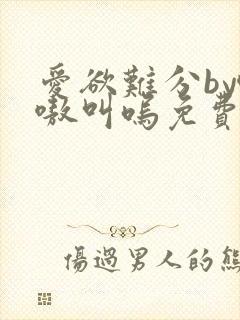 愛欲難分by
嗷叫嗚免費
傷過男人的熊